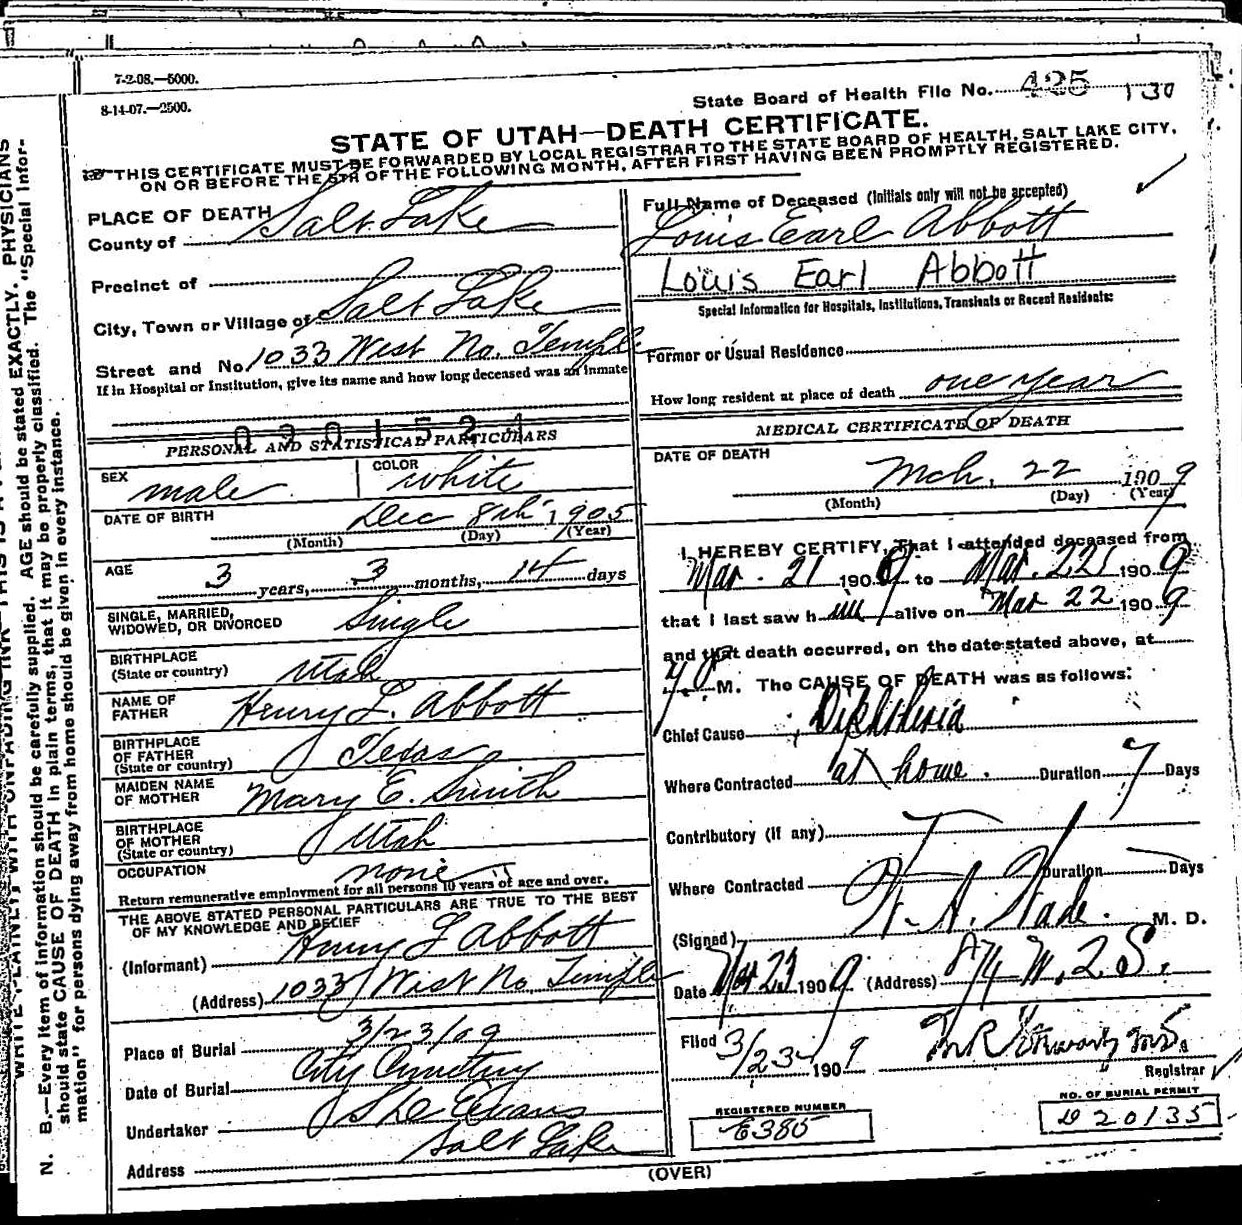 7-2-08.—5000.
8-14-07.—2500.
State Board of Health File No. 425 130
STATE OF UTAH—DEATH CERTIFICATE.
THIS CERTIFICATE MUST BE FORWARDED BY LOCAL REGISTRAR TO THE STATE BOARD OF HEALTH, SALT LAKE CITY,
ON OR BEFORE THE 5TH OF THE FOLLOWING MONTH, AFTER FIRST HAVING BEEN PROMPTLY REGISTERED.
PLACE OF DEATH
County of Salt Lake
Precinct of
City, Town or Village of Salt Lake
Street and No. 1033 West No. Temple
If in Hospital or Institution, give its name and how long deceased was an inmate
PERSONAL AND STATISTICAL PARTICULARS
SEX male COLOR white
DATE OF BIRTH Dec 8th 1905
(Month) (Day) (Year)
AGE 3 years, 3 months, 14 days
SINGLE, MARRIED, Single
WIDOWED, OR DIVORCED
BIRTHPLACE Utah
(State or country)
NAME OF Henry L. Abbott
FATHER
BIRTHPLACE Texas
OF FATHER
(State or country)
MAIDEN NAME Mary E. Smith
OF MOTHER
BIRTHPLACE Utah
OF MOTHER
(State or country)
OCCUPATION none
Return remunerative employment for all persons 10 years of age and over.
THE ABOVE STATED PERSONAL PARTICULARS ARE TRUE TO THE BEST
OF MY KNOWLEDGE AND BELIEF
(Informant) Henry L Abbott
(Address) 1033 West No. Temple
Place of Burial 3/23/09
Date of Burial City Cemetery
Undertaker Evans
Address Salt Lake
Full Name of Deceased (Initials only will not be accepted)
Louis Earl Abbott
Louis Earl Abbott
Special Information for Hospitals, Institutions, Transients or Recent Residents:
Former or Usual Residence
How long resident at place of death one year
MEDICAL CERTIFICATE OF DEATH
DATE OF DEATH Mch. 22 1909
(Month) (Day) (Year)
I HEREBY CERTIFY, That I attended deceased from
Mar. 21 1909 to Mar. 22 1909
that I last saw him alive on Mar 22 1909
and that death occurred, on the date stated above, at
M. The CAUSE OF DEATH was as follows:
Chief Cause Diphtheria
Where Contracted at home. Duration 7 Days
Contributory (if any)
Where Contracted Duration Days
(Signed) M. D.
Date Mar 23 1909 (Address) W. 2 S.
Filed 3/23 1909
Registrar
REGISTERED NUMBER
E385
NO. OF BURIAL PERMIT
D 20135
(OVER)
N. B.—Every item of information should be carefully supplied. AGE should be stated EXACTLY. PHYSICIANS
should state CAUSE OF DEATH in plain terms, that it may be properly classified. The "Special Infor-
mation" for persons dying away from home should be given in every instance.